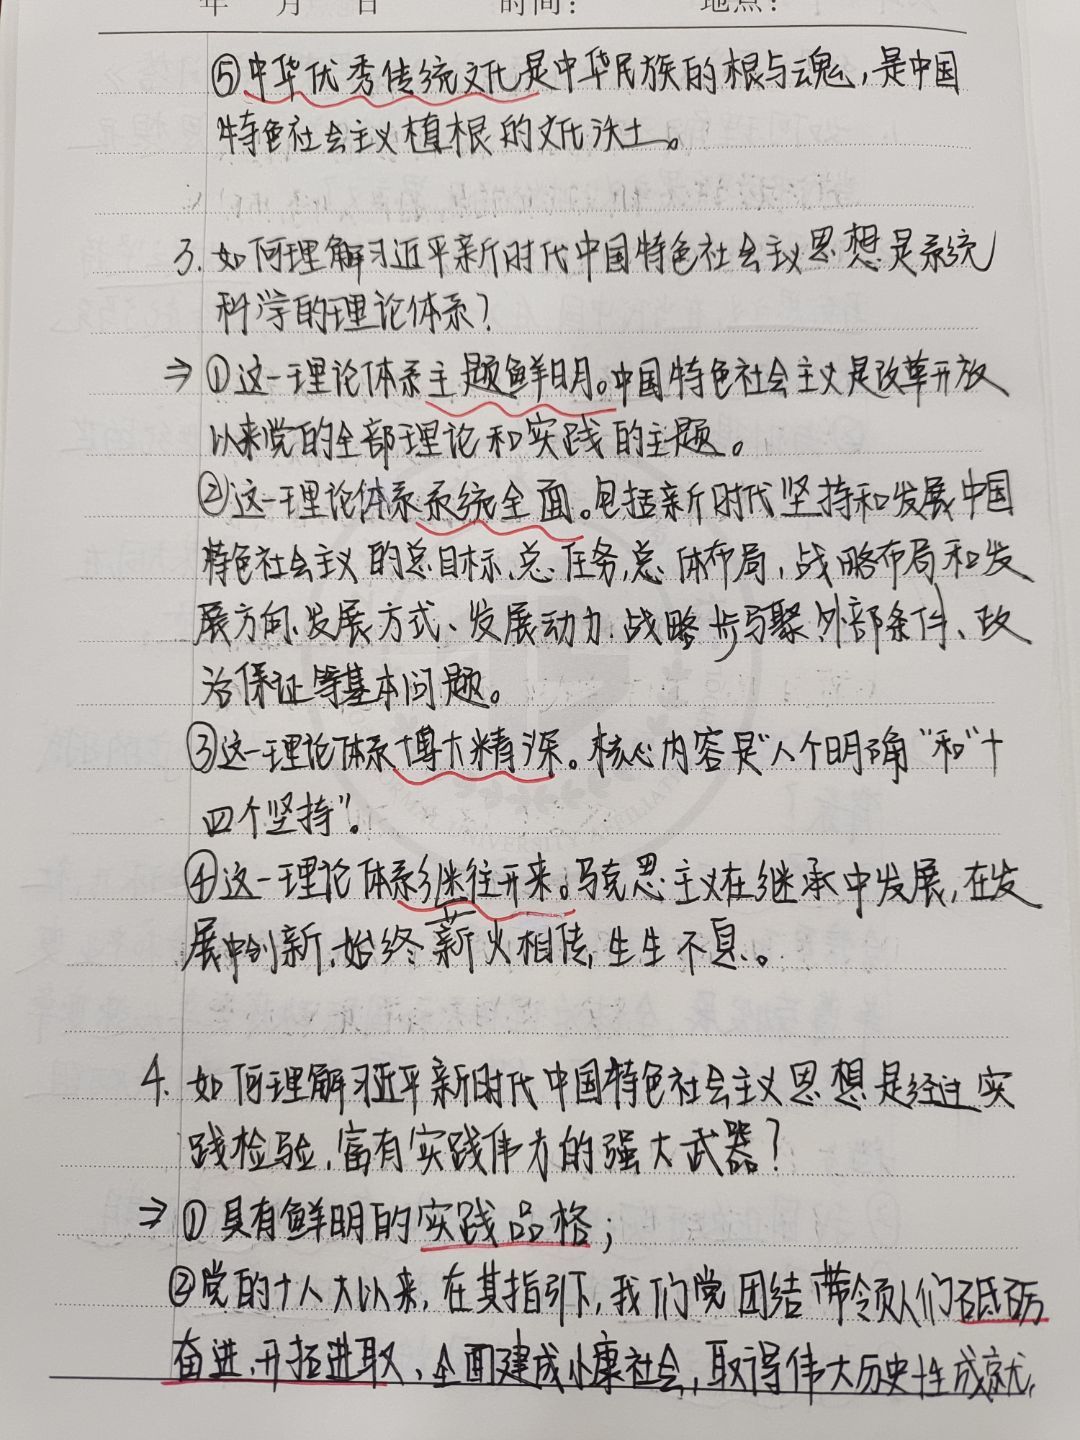 年 月 日 时间: 地点:
⑤中华优秀传统文化是中华民族的根与魂,是中国
特色社会主义植根的文化沃土。
3. 如何理解习近平新时代中国特色社会主义思想是系统
科学的理论体系?
⇒ ①这一理论体系主题鲜明。中国特色社会主义是改革开放
以来党的全部理论和实践的主题。
②这一理论体系系统全面。包括新时代坚持和发展中国
特色社会主义的总目标、总任务、总体布局,战略布局和发
展方向、发展方式、发展动力、战略步骤、外部条件、政
治保证等基本问题。
③这一理论体系博大精深。核心内容是“八个明确”和“十
四个坚持”。
④这一理论体系继往开来。马克思主义在继承中发展,在发
展中创新,始终薪火相传,生生不息。
4. 如何理解习近平新时代中国特色社会主义思想是经过实
践检验,富有实践伟力的强大武器?
⇒ ①具有鲜明的实践品格;
②党的十八大以来,在其指引下,我们党团结带领人们砥砺
奋进、开拓进取、全面建成小康社会,取得伟大历史性成就,